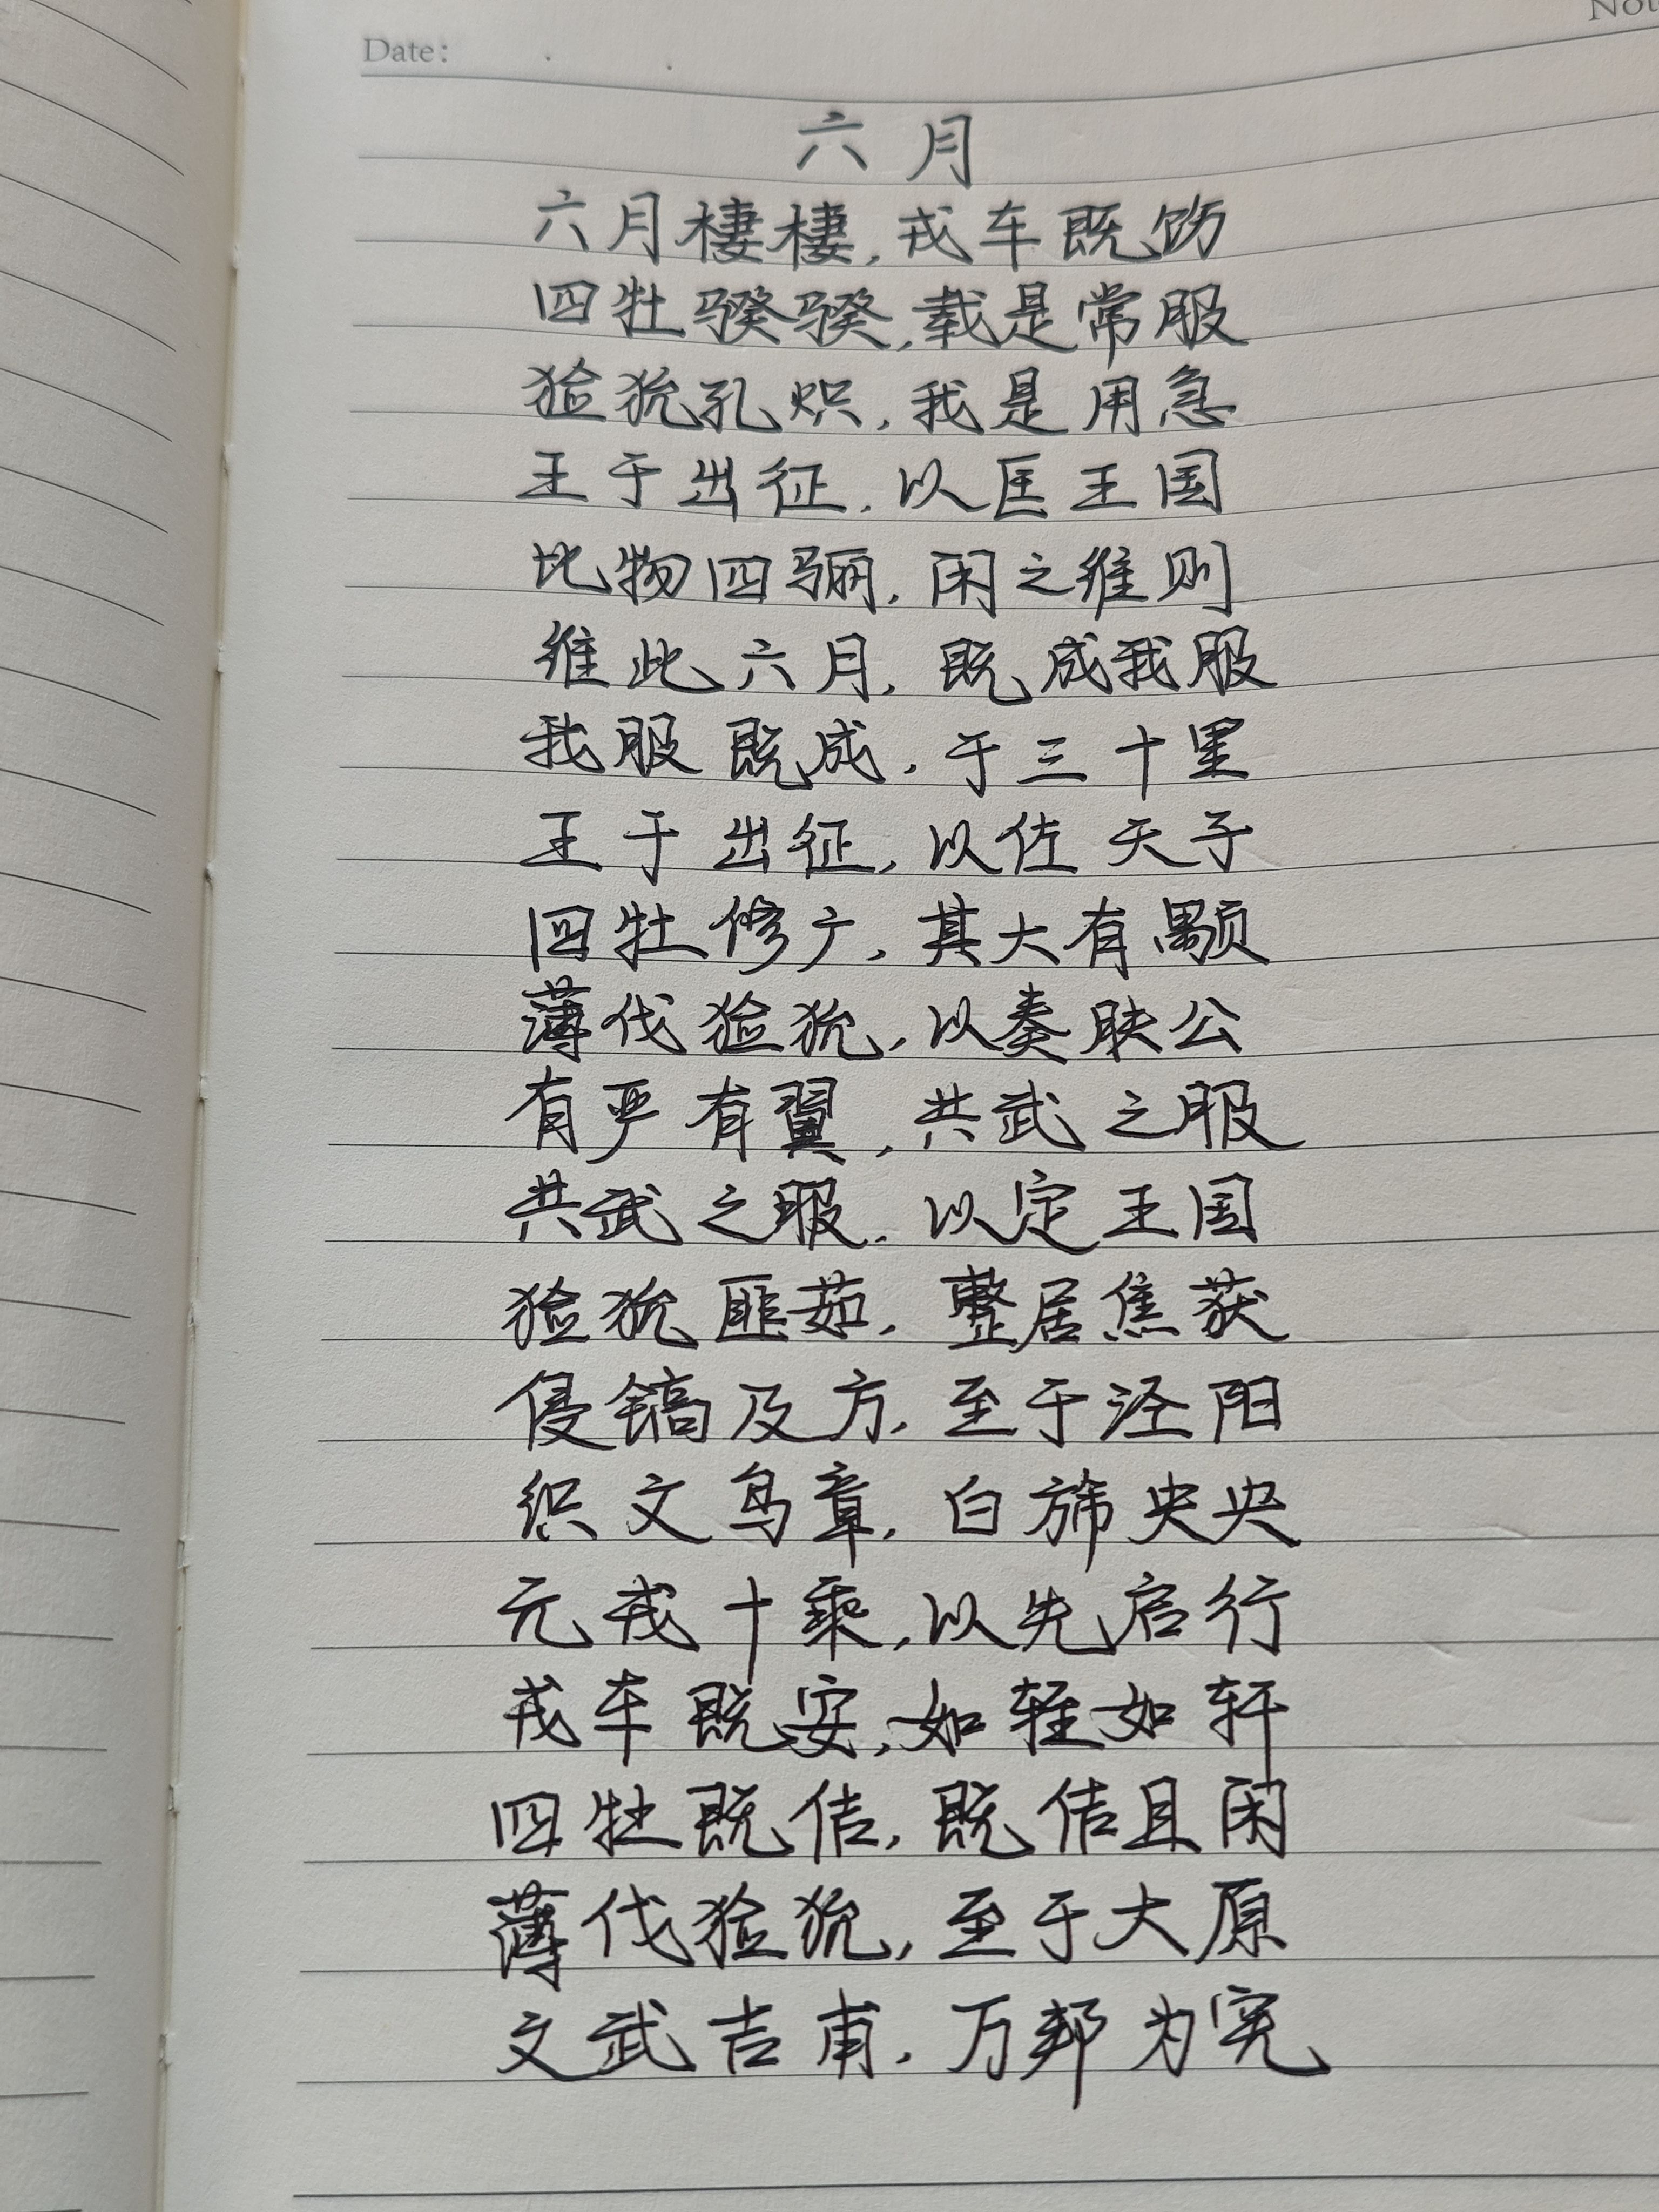 Date:
六月
六月棲棲,戎车既饬
四牡骙骙,载是常服
猃狁孔炽,我是用急
王于出征,以匡王国
比物四骊,闲之维则
维此六月,既成我服
我服既成,于三十里
王于出征,以佐天子
四牡修广,其大有颙
薄伐猃狁,以奏肤公
有严有翼,共武之服
共武之服,以定王国
猃狁匪茹,整居焦获
侵镐及方,至于泾阳
织文鸟章,白旆央央
元戎十乘,以先启行
戎车既安,如轾如轩
四牡既佶,既佶且闲
薄伐猃狁,至于大原
文武吉甫,万邦为宪